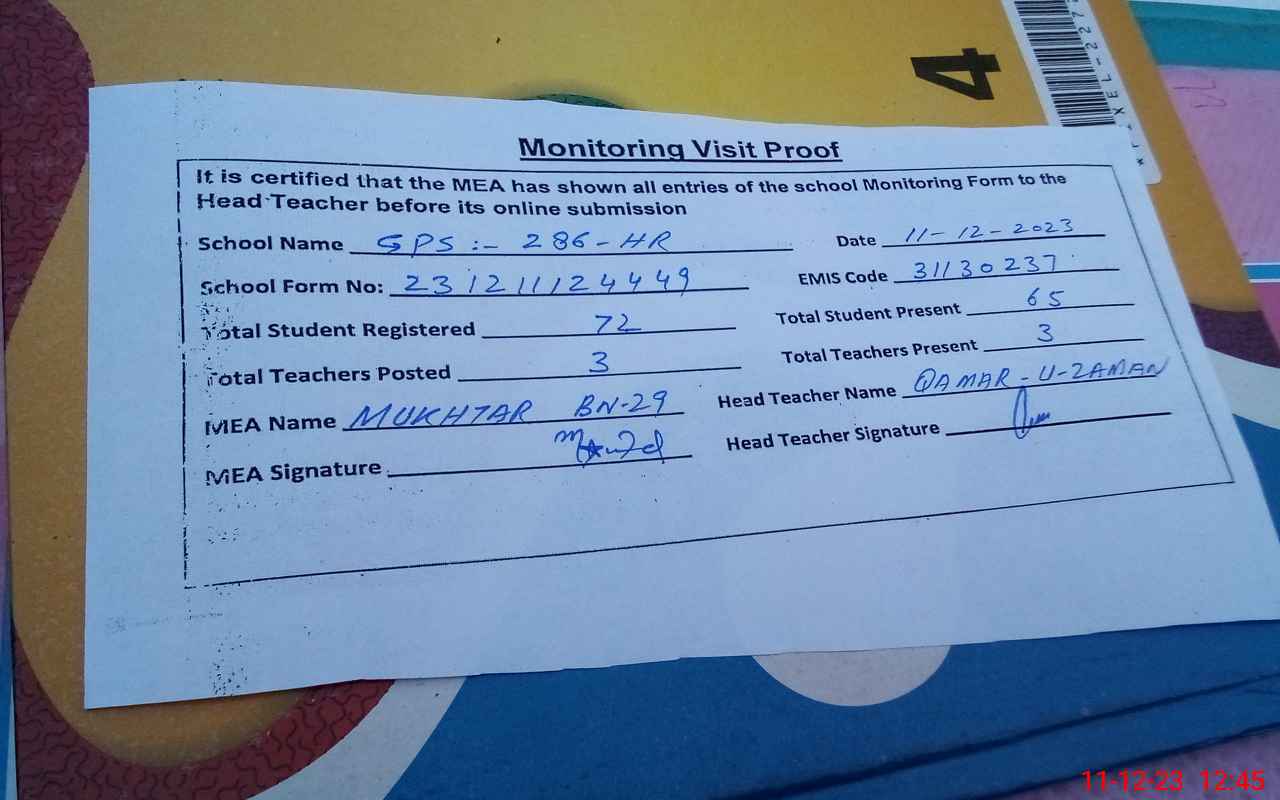 4
Monitoring Visit Proof
It is certified that the MEA has shown all entries of the school Monitoring Form to the
Head Teacher before its online submission
School Name GPS :- 286-HR Date 11-12-2023
School Form No: 231211124449 EMIS Code 31130237
Total Student Registered 72 Total Student Present 65
Total Teachers Posted 3 Total Teachers Present 3
MEA Name MUKHTAR BN-29 Head Teacher Name QAMAR-U-ZAMAN
MEA Signature Head Teacher Signature
11-12-23 12:45